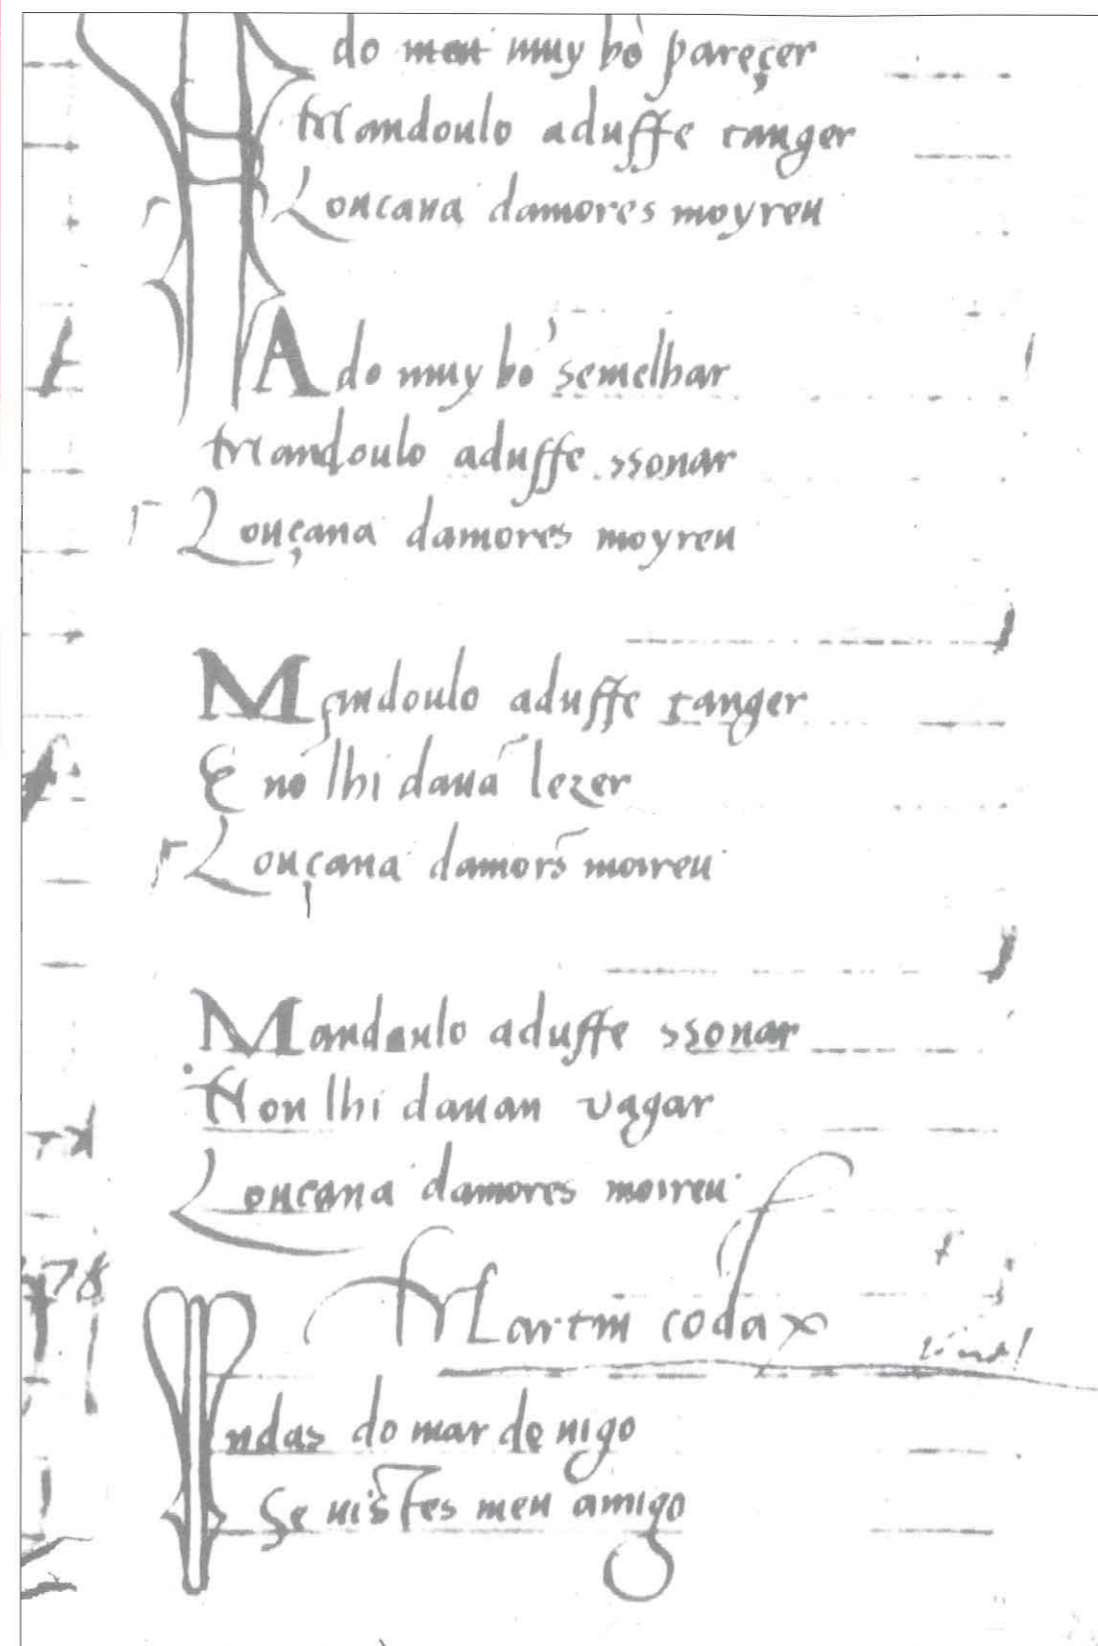 do meu muy bõ pareçer
Mandoulo aduffe tanger
Loucana damores moyreu
A do muy bõ semelhar
Mandoulo aduffe ssonar
Louçana damores moyreu
Mandoulo aduffe tanger
E nõ lhi dauã lezer
Louçana damor̃s moireu
Mandoulo aduffe ssonar
Non lhi dauan vagar
Loucana damores moireu
Martin codax
ndas do mar de uigo
Se uistes meu amigo